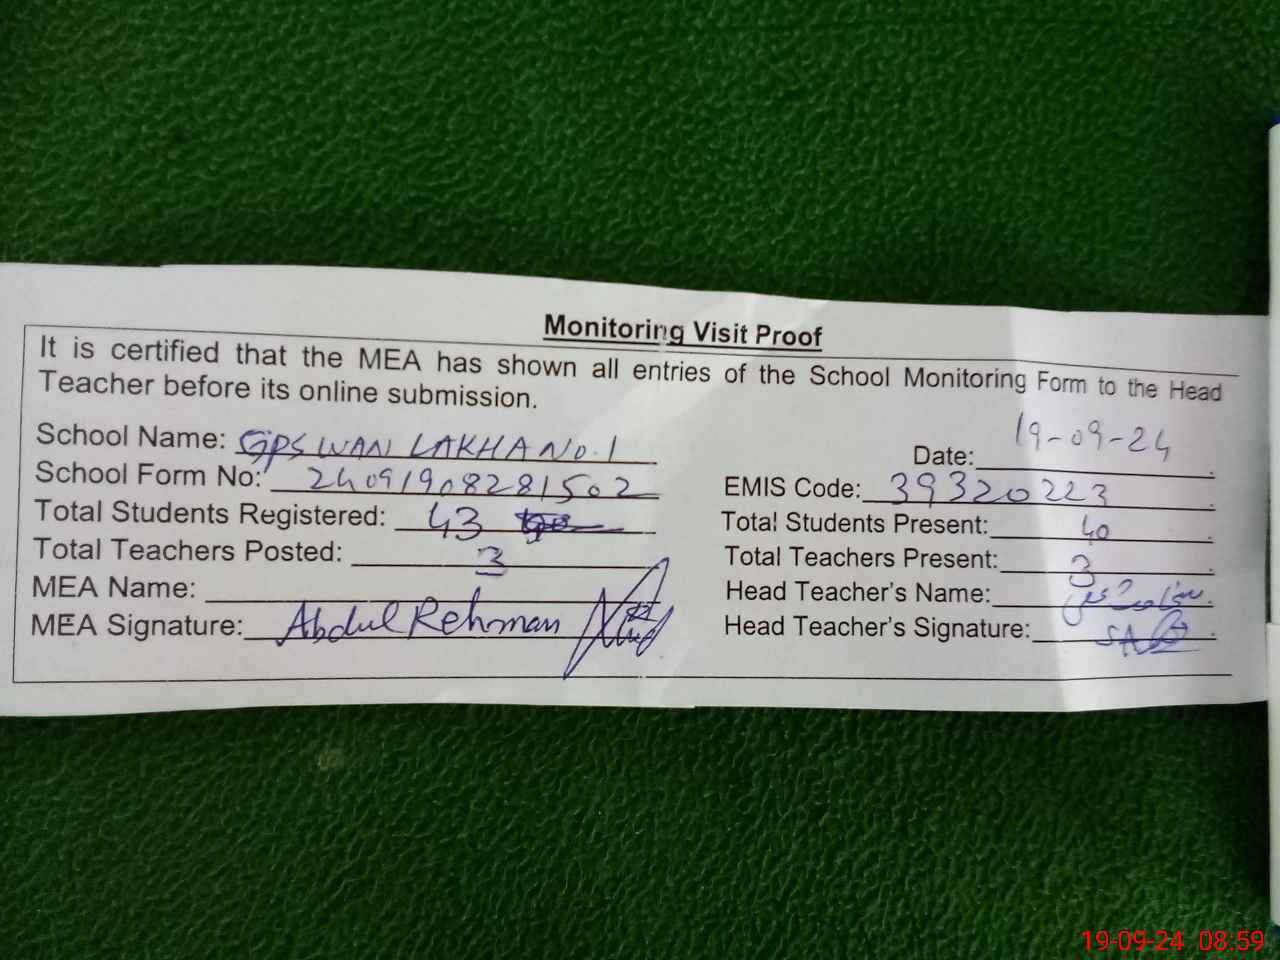 Monitoring Visit Proof
It is certified that the MEA has shown all entries of the School Monitoring Form to the Head
Teacher before its online submission.
School Name: GPS WAN LAKHA No. 1
Date: 19-09-24
School Form No: 24091908281502
EMIS Code: 39320223
Total Students Registered: 43
Total Students Present: 40
Total Teachers Posted: 3
Total Teachers Present: 3
MEA Name:
Head Teacher's Name:
MEA Signature: Abdul Rehman
Head Teacher's Signature:
19-09-24 08:59